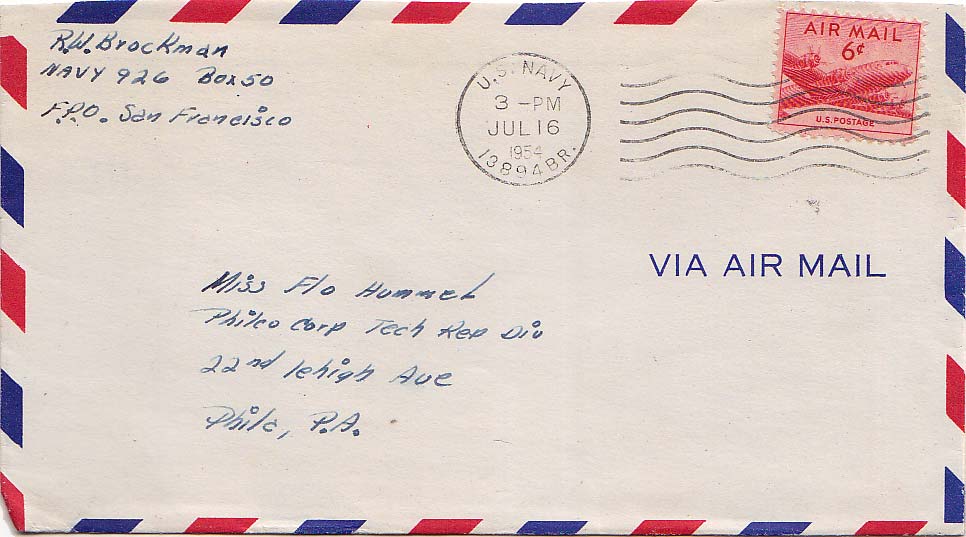 R.W. Brockman
NAVY 926 Box 50
F.P.O. San Francisco
U.S. NAVY
3 -PM
JUL 16
1954
13894 BR.
AIR MAIL
6¢
U.S. POSTAGE
VIA AIR MAIL
Miss Flo Hummel
Philco Corp Tech Rep Div
22nd Lehigh Ave
Phila, P.A.